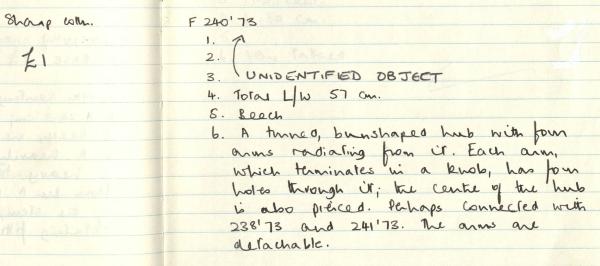 Sharp colln.
£1
F 240'73
1.
2.
3. UNIDENTIFIED OBJECT
4. Total L/W 57 cm.
5. Beech
6. A turned, bunshaped hub with four
arms radiating from it. Each arm,
which terminates in a knob, has four
holes through it; the centre of the hub
is also pierced. Perhaps connected with
238'73 and 241'73. The arms are
detachable.